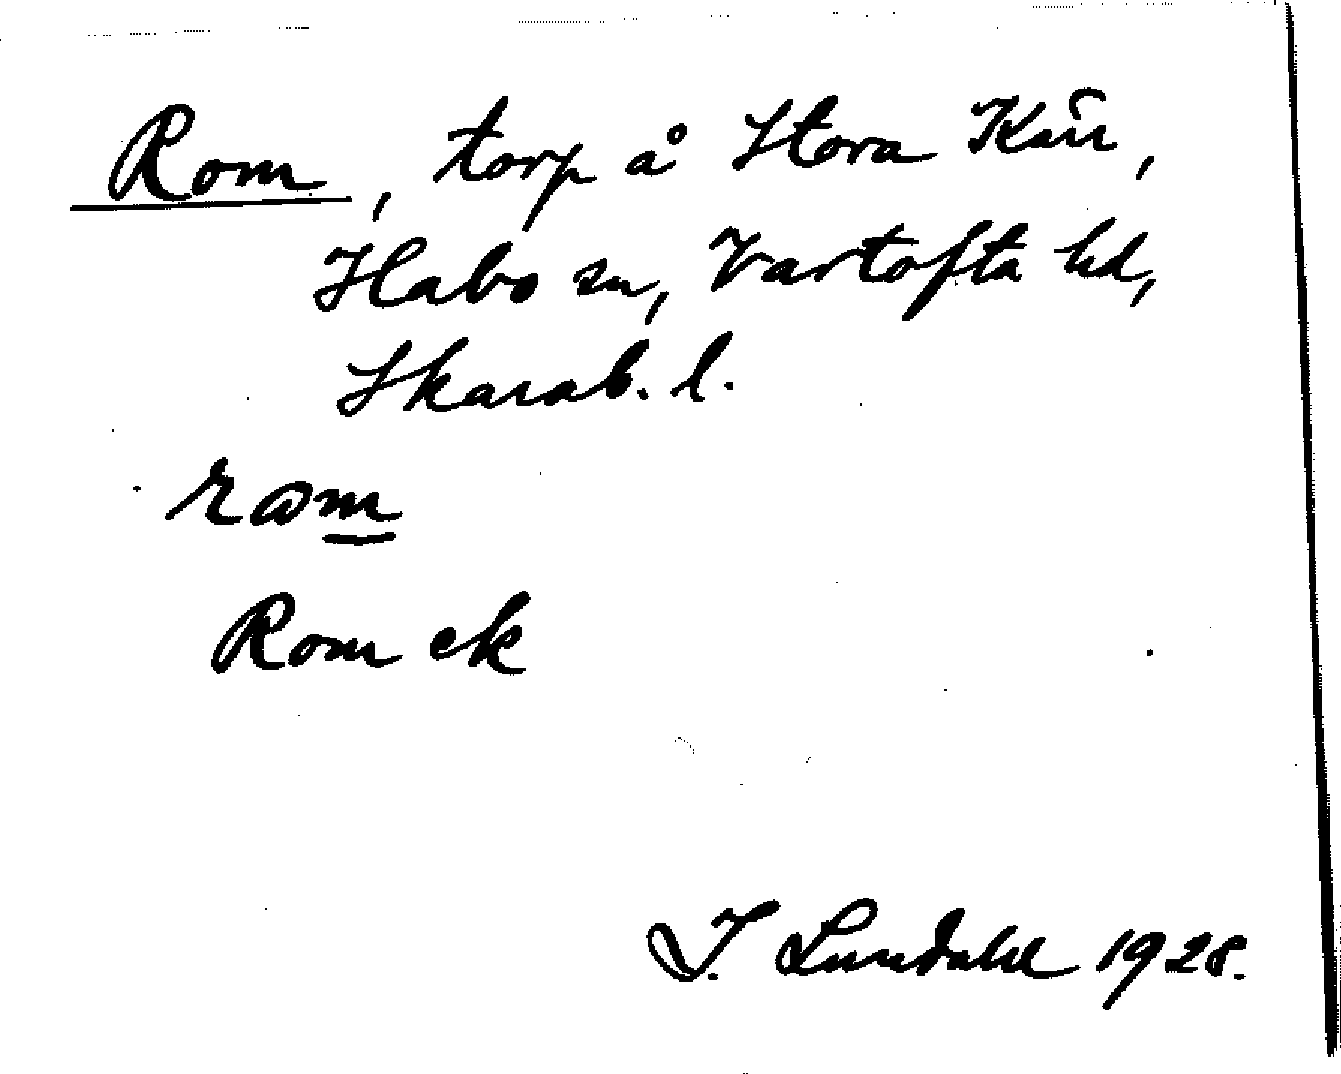 Rom, torp å Stora Kärr,
Habo sn, Vartofta hd,
Skarab. l.
rωm
Rom ek
I. Lundahl 1928.